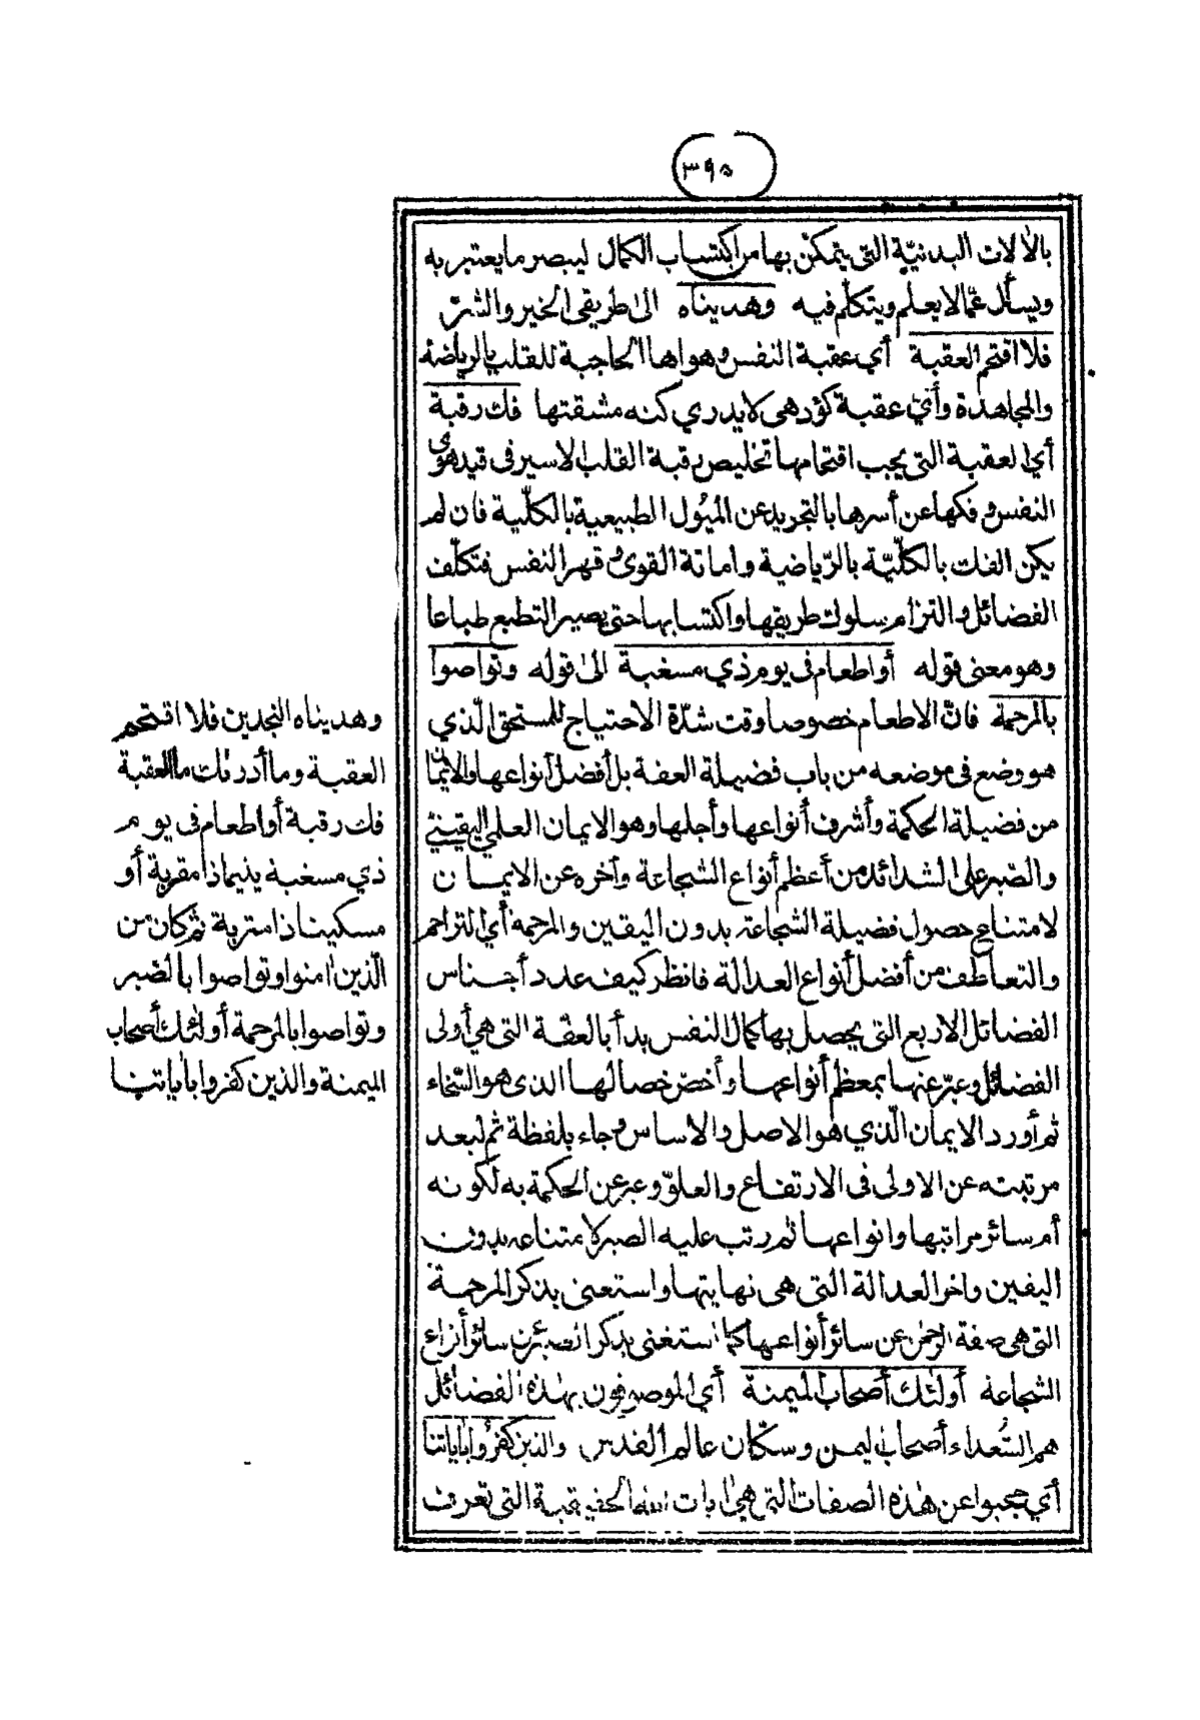 ٣٩٥
بالآلات البدنيّة التى يتمكّن بها من اكتساب الكمال ليبصر ما يعتبر به
ويسأل عمّا لا يعلم ويتكلّم فيه وهديناه الى طريقى الخير والشرّ
فلا اقتحم العقبة أي عقبة النفس وهواها الحاجبة للقلب بالرياضة
والمجاهدة وأيّ عقبة كؤد هى لا يدري كنه مشقتها فك رقبة
أي العقبة التى يجب اقتحامها تخليص رقبة القلب الاسير فى قيد هوى
النفس وفكها عن أسرها بالتجريد عن الميُول الطبيعية بالكلّية فان لم
يكن الفك بالكلّيّة بالرّياضية واماتة القوى وقهر النفس فتكلّف
الفضائل والتزام سلوك طريقها واكتسابها حتى يصير التطبع طباعا
وهو معنى قوله أو اطعام فى يوم ذي مسغبة الى قوله وتواصوا
بالمرحمة فانّ الاطعام خصوصا وقت شدّة الاحتياج للمستحق الّذي
هو وضع فى موضعه من باب فضيلة العفة بل أفضل أنواعها والايمان
من فضيلة الحكمة وأشرف أنواعها وأجلها وهو الايمان العلمي اليقينيّ
والصّبر على الشدائد من أعظم أنواع الشجاعة وأخره عن الايمان
لامتناع حصول فضيلة الشجاعة بدون اليقين والمرحمة أي التراحم
والتعاطف من أفضل أنواع العدالة فانظر كيف عدد أجناس
الفضائل الاربع التى يحصل بها كمال النفس بدأ بالعفّة التى هي أولى
الفضائل وعبّر عنها بمعظم أنواعها وأخصّ خصالها الذى هو السّخاء
ثم أورد الايمان الّذي هو الاصل والاساس وجاء بلفظة ثم لبعد
مرتبته عن الاولى فى الارتفاع والعلوّ وعبر عن الحكمة به لكونه
أم سائر مراتبها وانواعها ثم رتب عليه الصبر لامتناعه بدون
اليقين واخر العدالة التى هى نهايتها واستغنى بذكر المرحمة
التى هى صفة الرحمن عن سائر أنواعها كما استغنى بذكر الصبر عن سائر أنواع
الشجاعة أولئك أصحاب الميمنة أي الموصوفون بهذه الفضائل
هم السُّعداء أصحاب ليمن وسكّان عالم القدس والذين كفروا بآياتنا
أي حجبوا عن هذه الصفات التى هي آيات الله الحقيقية التى تعرف
وهديناه النجدين فلا اقتحم
العقبة وما أدرنك ما العقبة
فك رقبة أو اطعام فى يوم
ذي مسغبة يتيما ذا مقربة أو
مسكينا ذا متربة ثم كان من
الّذين اٰمنوا وتواصوا بالصّبر
وتواصوا بالمرحمة أولئك أصحاب
الميمنة والذين كفروا باٰياتنا